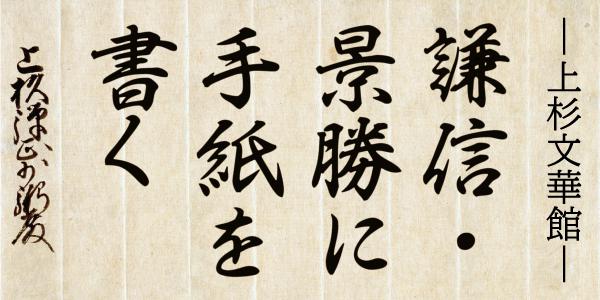 ―上杉文華館―
謙信・
景勝に
手紙を
書く
上杉弾正少弼殿